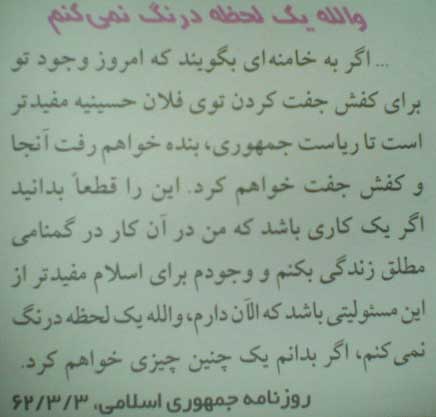 والله یک لحظه درنگ نمی‌کنم
... اگر به خامنه‌ای بگویند که امروز وجود تو
برای کفش جفت کردن توی فلان حسینیه مفیدتر
است تا ریاست جمهوری، بنده خواهم رفت آنجا
و کفش جفت خواهم کرد. این را قطعاً بدانید
اگر یک کاری باشد که من در آن کار در گمنامی
مطلق زندگی بکنم و وجودم برای اسلام مفیدتر از
این مسئولیتی باشد که الآن دارم، والله یک لحظه درنگ
نمی‌کنم، اگر بدانم یک چنین چیزی خواهم کرد.
روزنامه جمهوری اسلامی، ۶۲/۳/۳